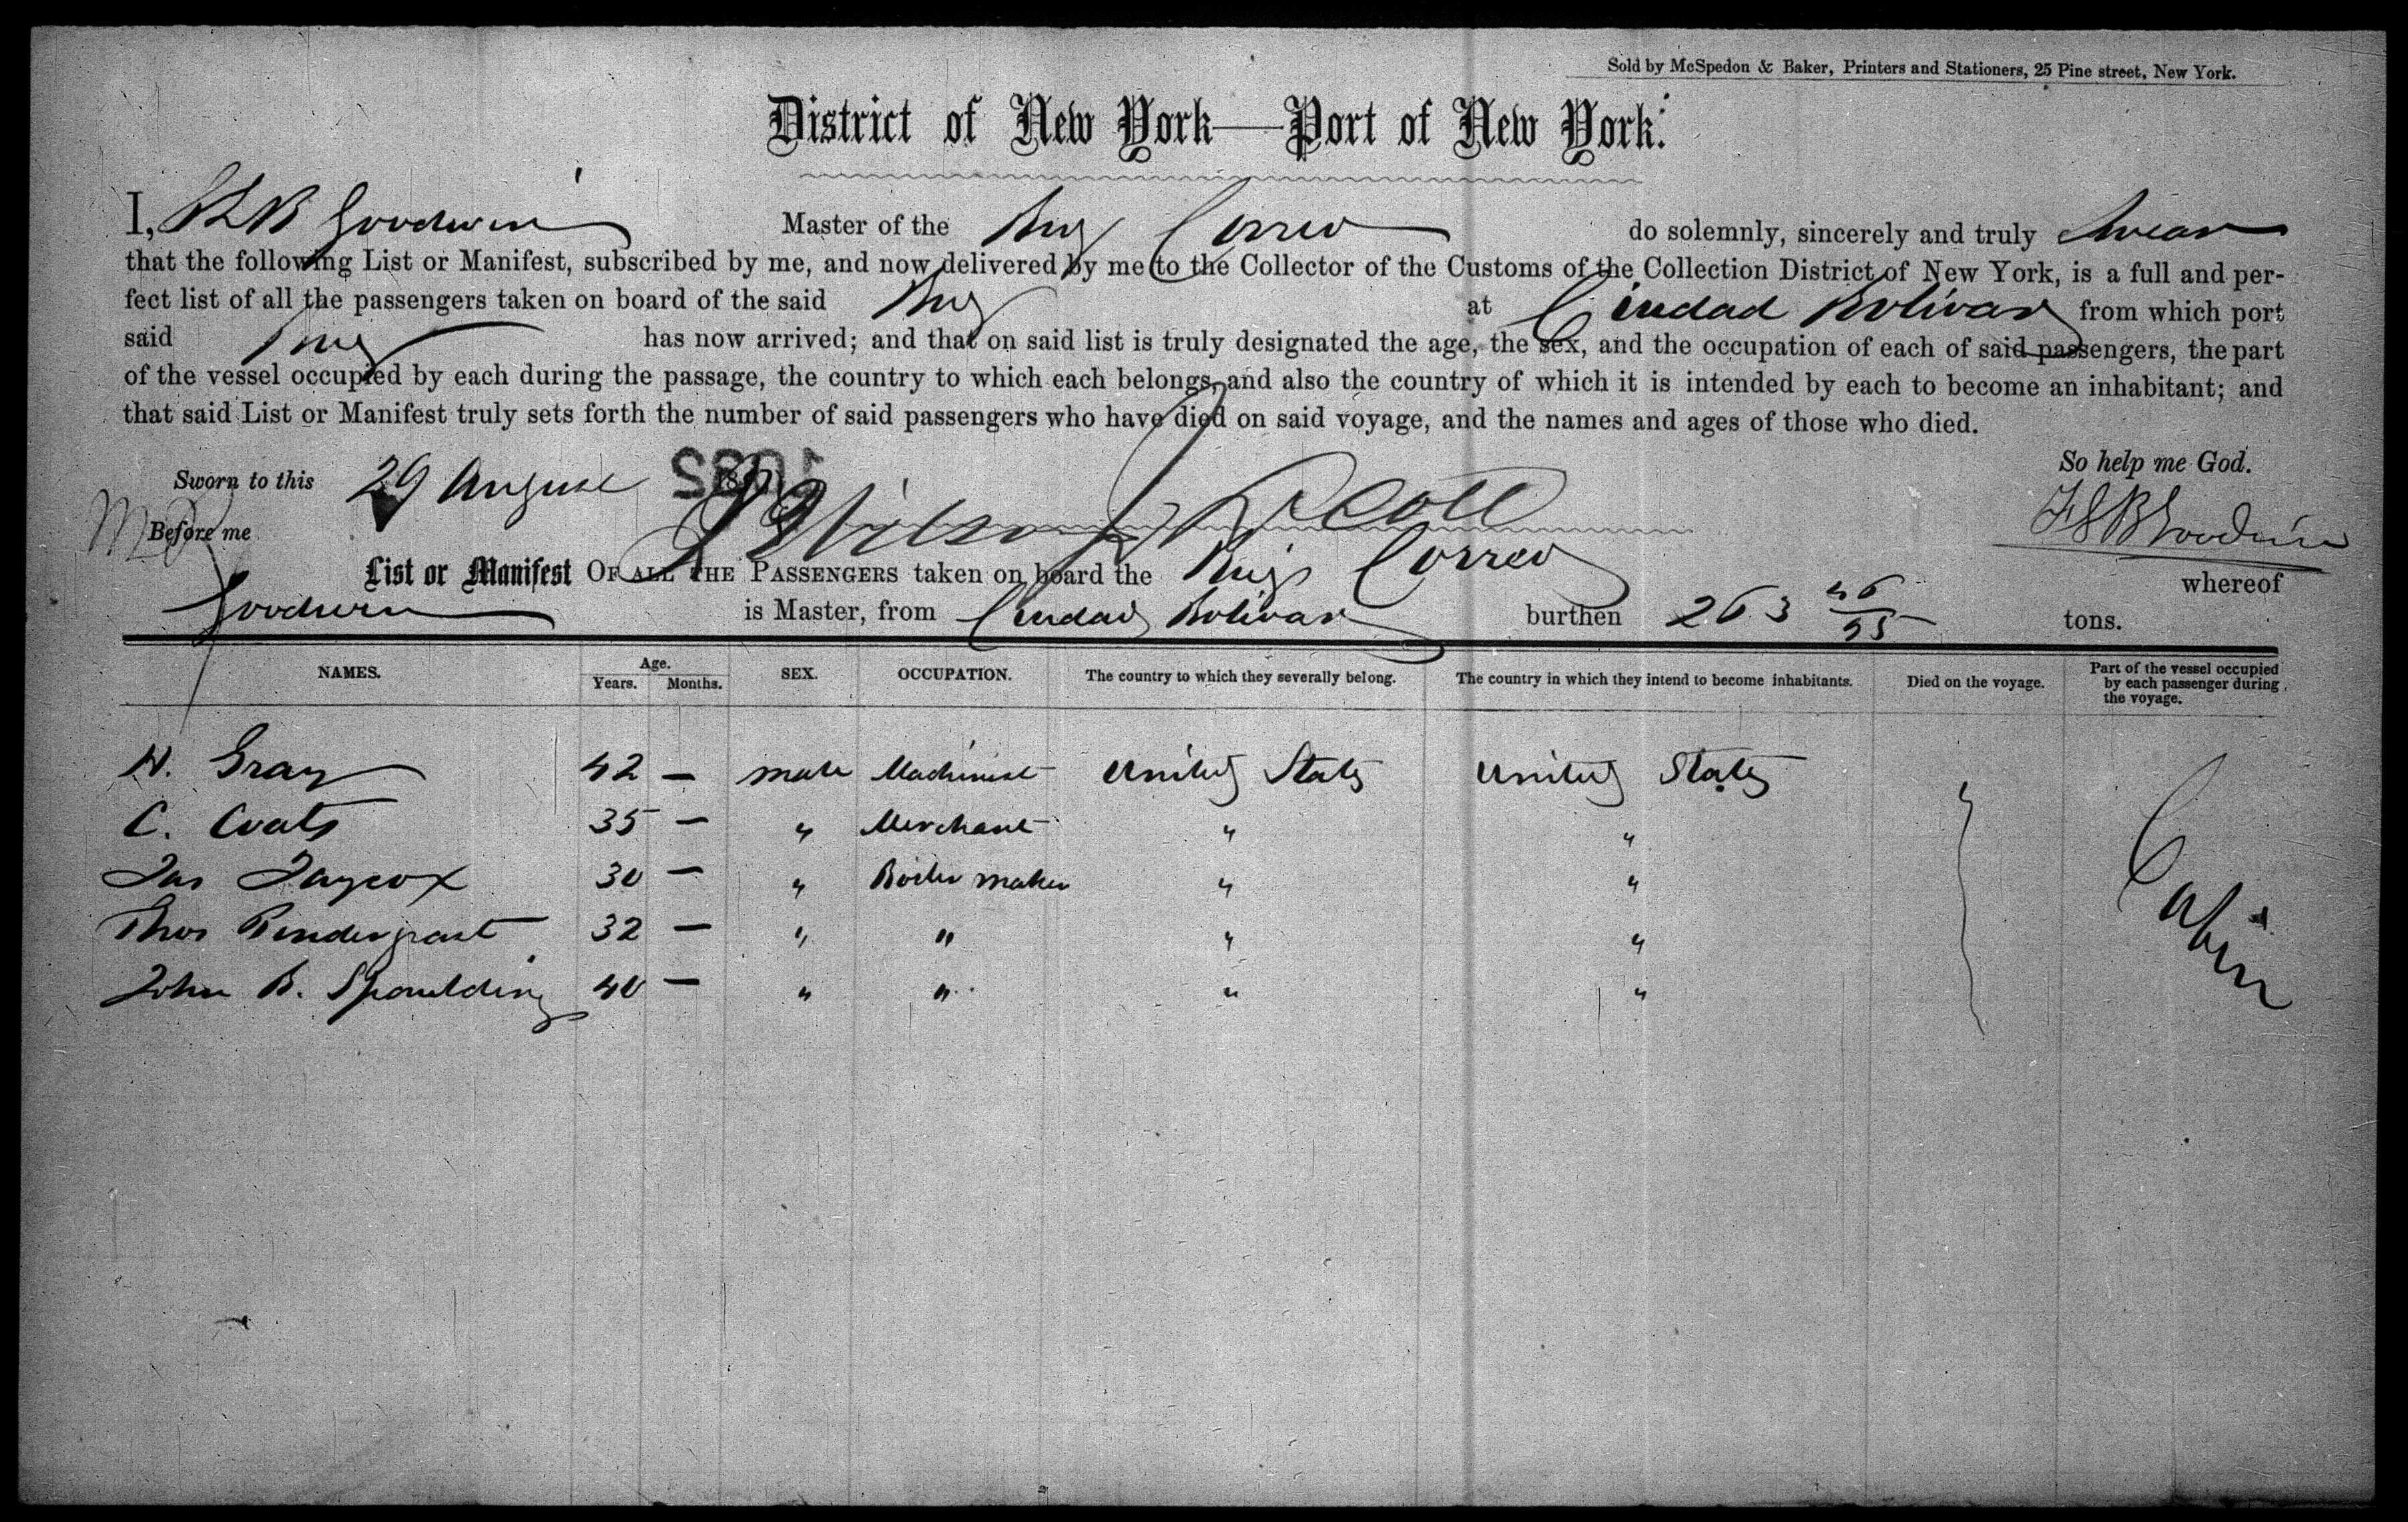 Sold by McSpedon & Baker, Printers and Stationers, 25 Pine street, New York.
District of New York—Port of New York.
I, Goodwin Master of the Brig Correo do solemnly, sincerely and truly swear
that the following List or Manifest, subscribed by me, and now delivered by me to the Collector of the Customs of the Collection District of New York, is a full and per-
fect list of all the passengers taken on board of the said Brig at Ciudad Bolivar from which port
said Brig has now arrived; and that on said list is truly designated the age, the sex, and the occupation of each of said passengers, the part
of the vessel occupied by each during the passage, the country to which each belongs, and also the country of which it is intended by each to become an inhabitant; and
that said List or Manifest truly sets forth the number of said passengers who have died on said voyage, and the names and ages of those who died.
So help me God.
Sworn to this 29 August
Before me Goodwin
List or Manifest OF ALL THE PASSENGERS taken on board the Brig Correo whereof
Goodwin is Master, from Ciudad Bolivar burthen 263 tons.
NAMES. Age. Years. Months. SEX. OCCUPATION. The country to which they severally belong. The country in which they intend to become inhabitants. Died on the voyage. Part of the vessel occupied by each passenger during the voyage.
H. Gray 42 — male Machinist United States United States
C. Coats 35 — " Merchant " "
Jas Jaycox 30 — " Boiler maker " "
Thos Pendergast 32 — " " " "
John B. Spaulding 40 — " " " "
Cabin